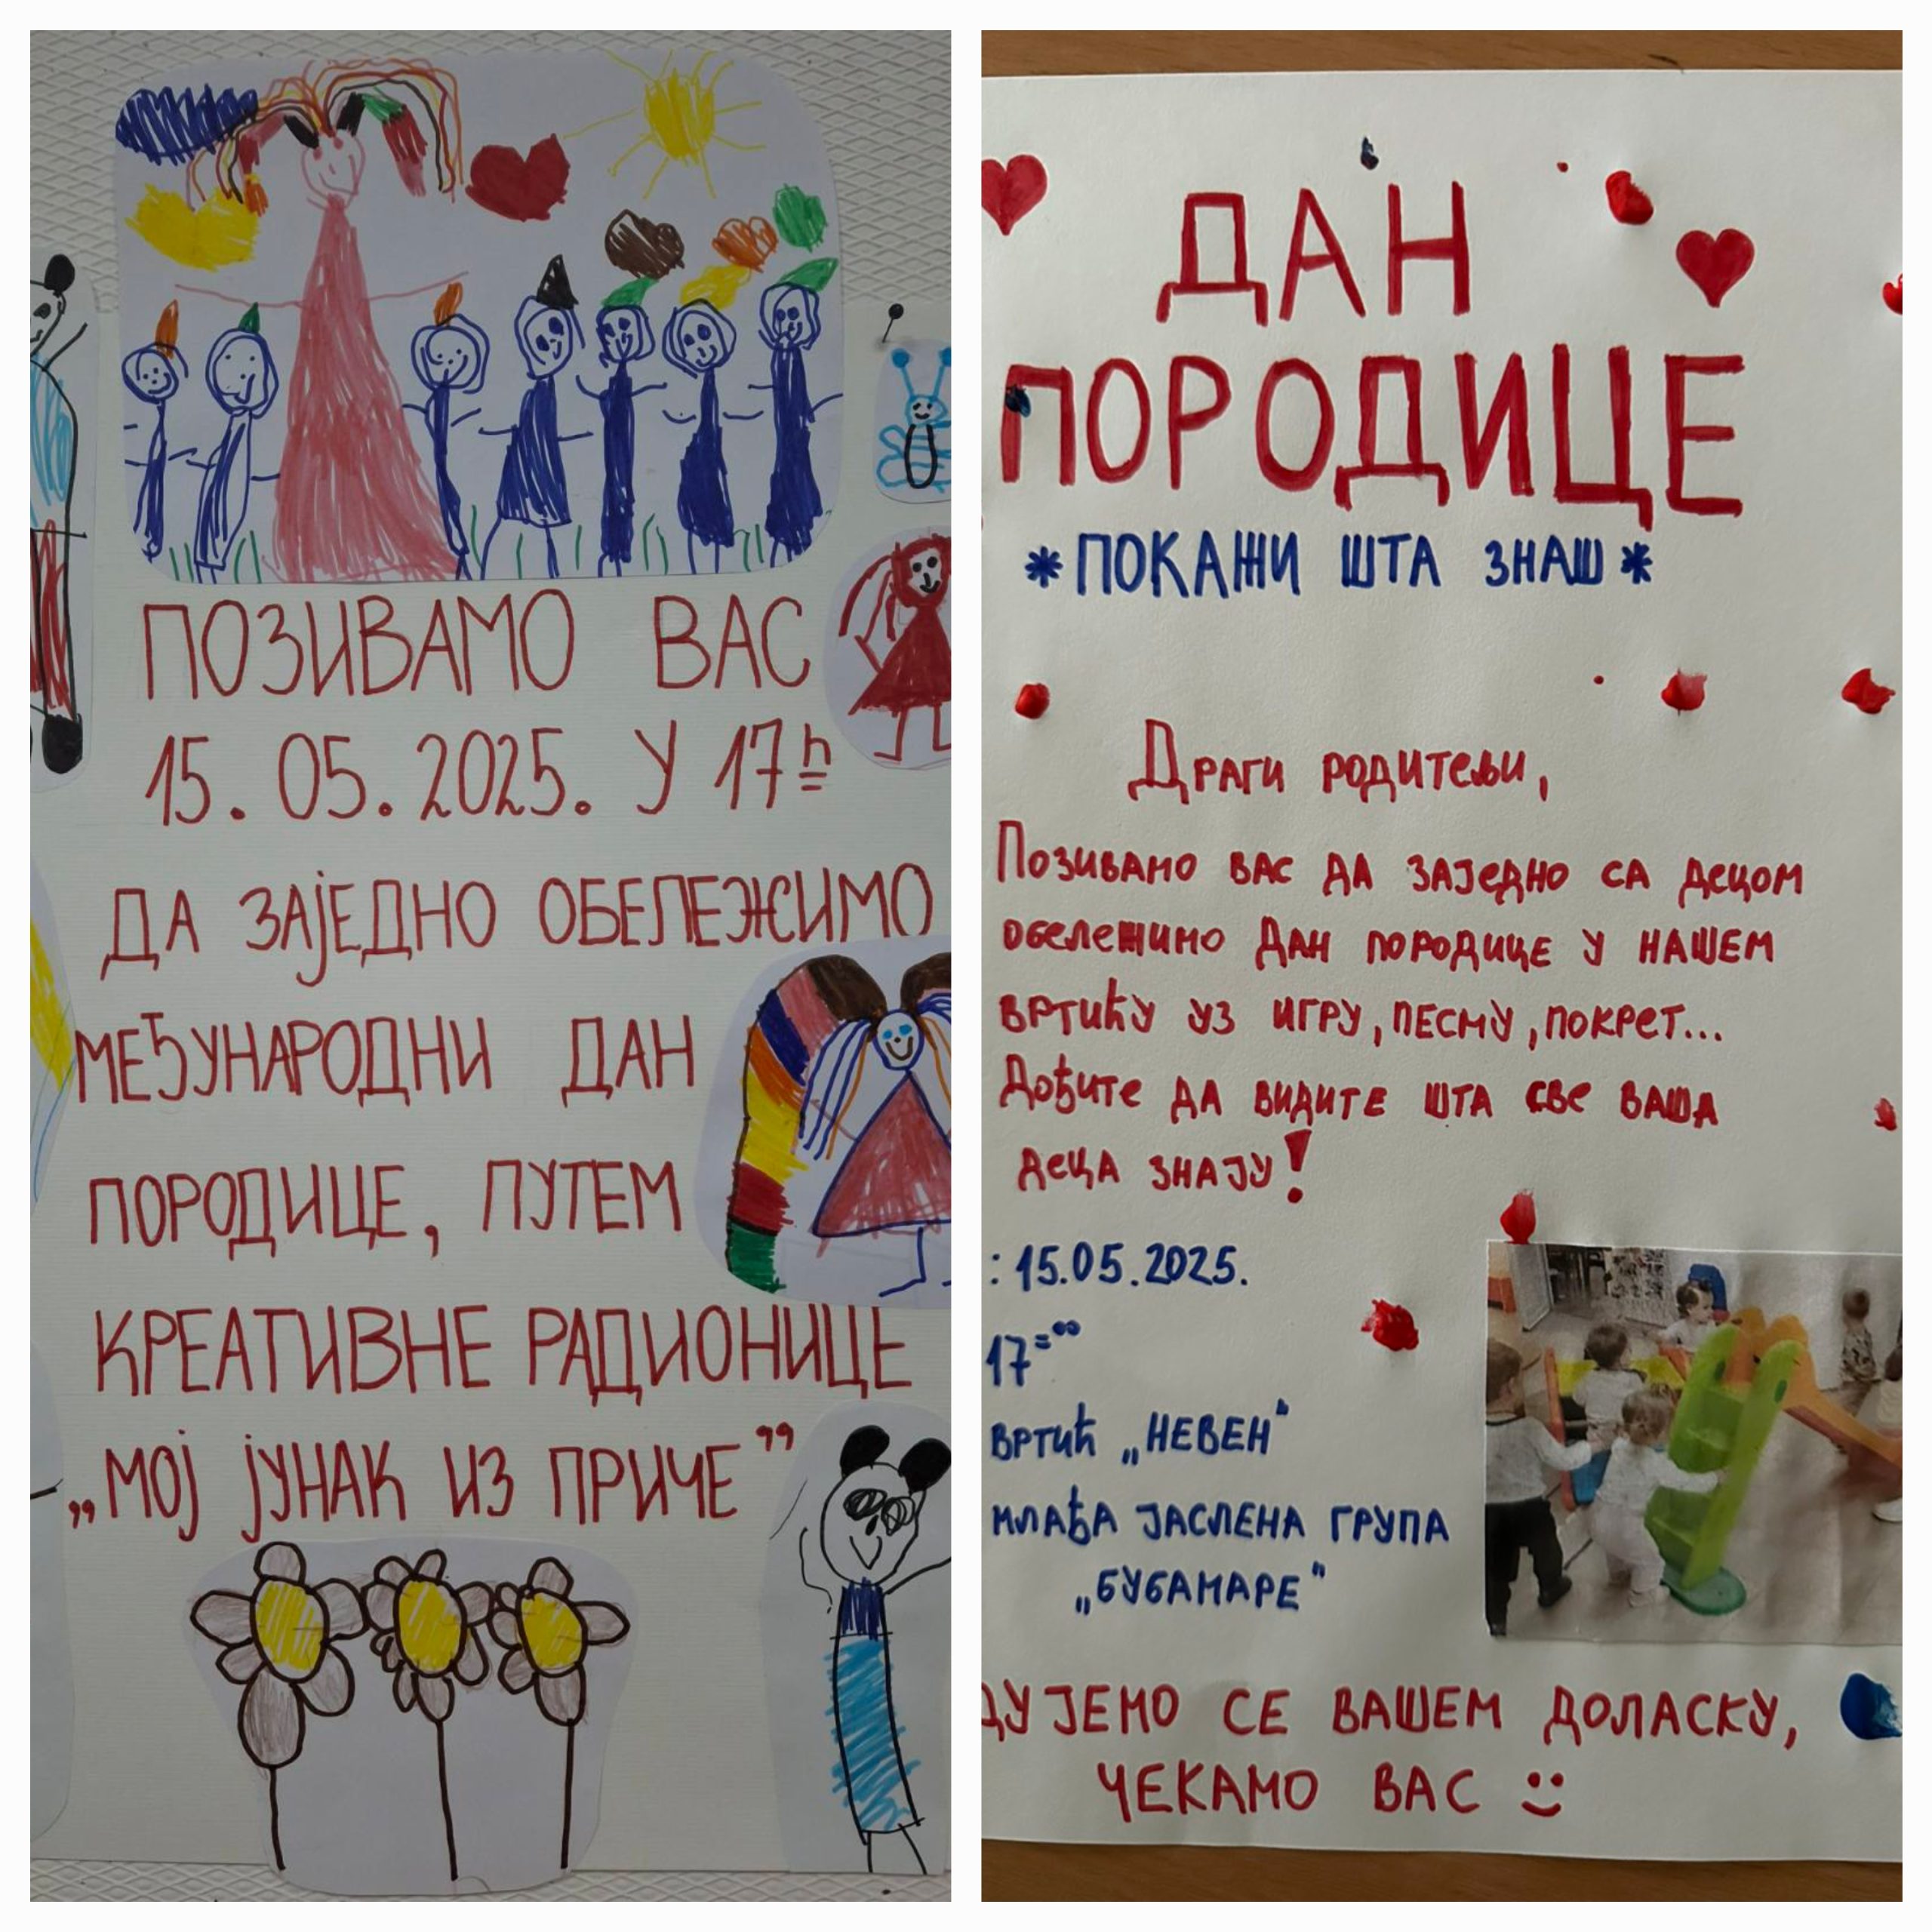 ПОЗИВАМО ВАС
15. 05. 2025. У 17h
ДА ЗАЈЕДНО ОБЕЛЕЖИМО
МЕЂУНАРОДНИ ДАН
ПОРОДИЦЕ, ПУТЕМ
КРЕАТИВНЕ РАДИОНИЦЕ
„МОЈ ЈУНАК ИЗ ПРИЧЕ”
ДАН
ПОРОДИЦЕ
*ПОКАЖИ ШТА ЗНАШ*
Драги родитељи,
Позивамо вас да заједно са децом
обележимо Дан породице у нашем
вртићу уз игру, песму, покрет...
Дођите да видите шта све ваша
деца знају!
: 15.05.2025.
17=00
вртић „НЕВЕН“
млађа јаслена група
„БУБАМАРЕ“
ДУЈЕМО СЕ ВАШЕМ ДОЛАСКУ,
ЧЕКАМО ВАС